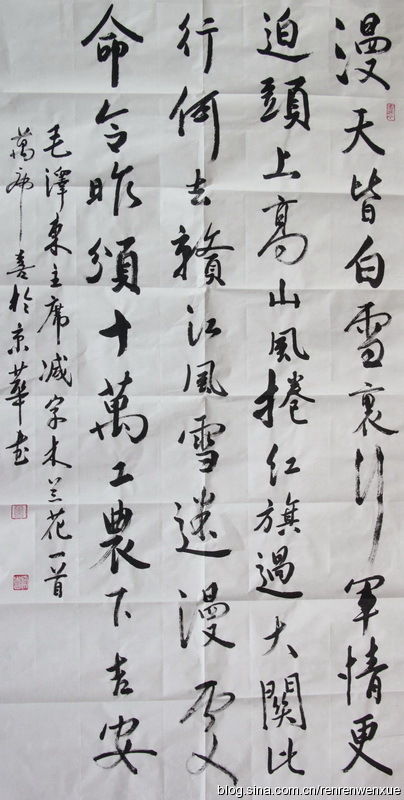 漫天皆白雪裏行軍情更
迫頭上高山風捲红旗過大關此
行何去贛江風雪迷漫處
命令昨頒十萬工農下吉安
毛澤東主席減字木兰花一首
萬喜於京華书
blog.sina.com.cn/renrenwenxue